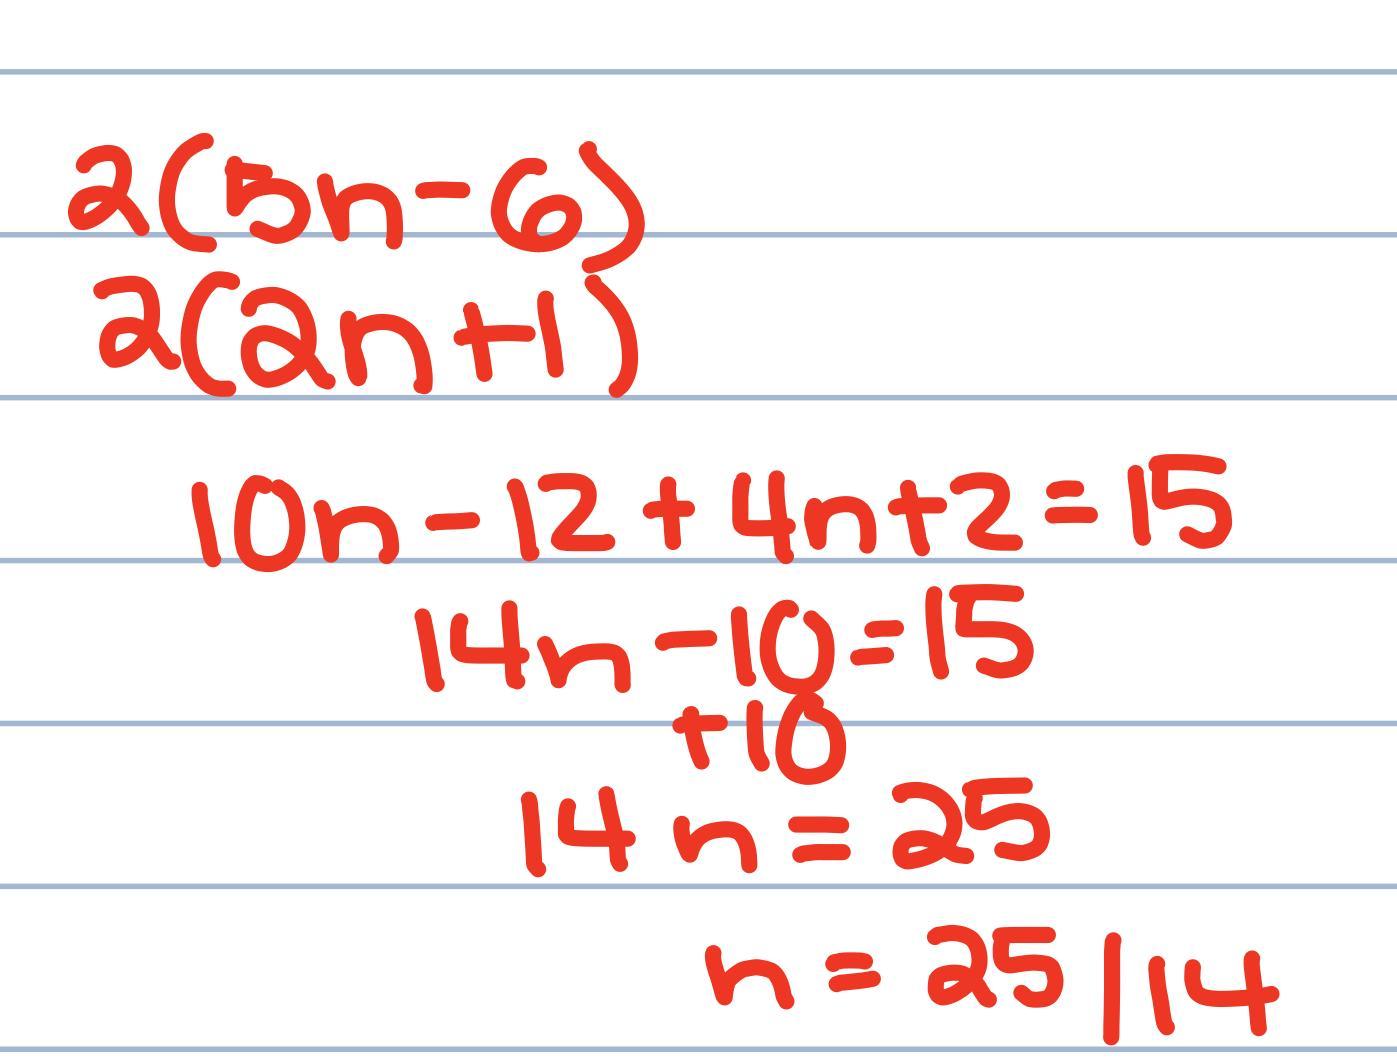 2(5n-6)
2(2n+1)
10n-12+4n+2=15
14n-10=15
+10
14n=25
n=25|14